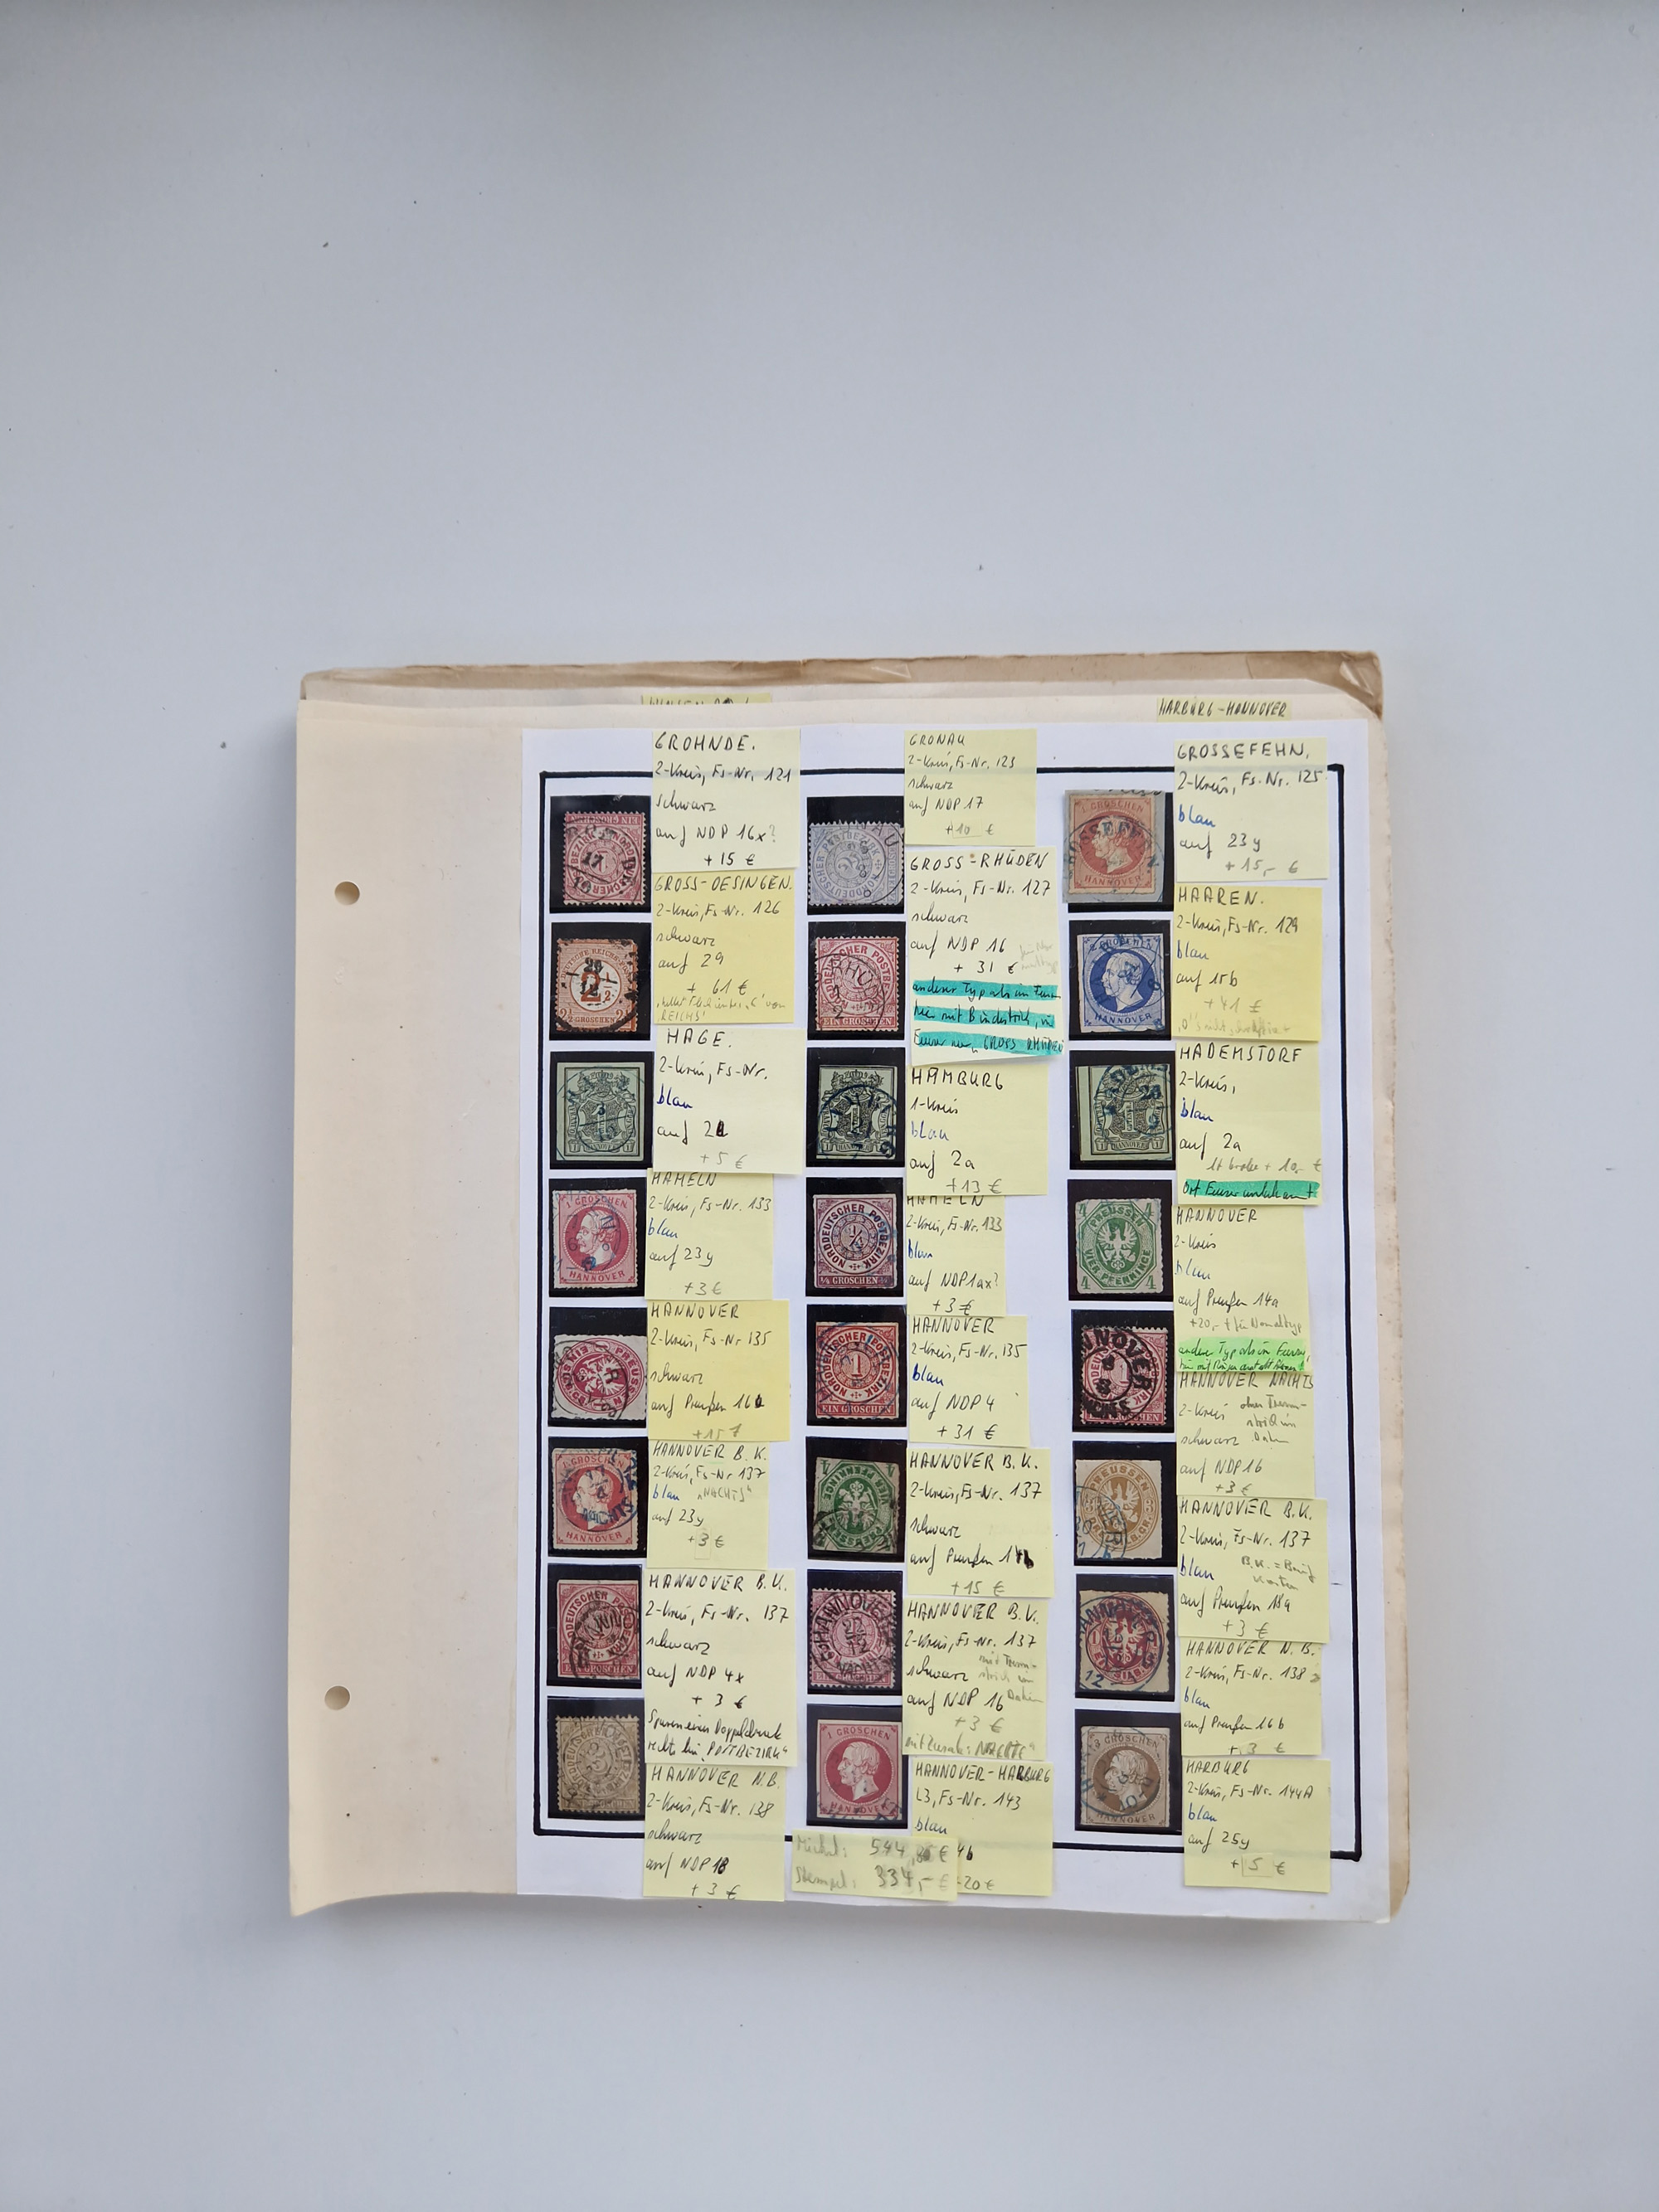 HARBURG-HANNOVER
GROHNDE.
2-Kreis, Fs-Nr. 121
schwarz
auf NDP 16x?
+ 15 €
GRONAU
2-Kreis, Fs-Nr. 123
schwarz
auf NDP 17
+10 €
GROSSEFEHN.
2-Kreis, Fs-Nr. 125
blau
auf 23y
+ 15,- €
GROSS-OESINGEN.
2-Kreis, Fs-Nr. 126
schwarz
auf 29
+ 61 €
REICHS'
GROSS-RHÜDEN
2-Kreis, Fs-Nr. 127
schwarz
auf NDP 16
+ 31 €
anderer Typ als im Feuser
hier mit Bindestrich, in
Feuser nur GROSS RHÜDEN
HAAREN.
2-Kreis, Fs-Nr. 129
blau
auf 15b
+ 41 €
HAGE.
2-Kreis, Fs-Nr.
blau
auf 2a
+ 5 €
HAMBURG
1-Kreis
blau
auf 2a
+ 13 €
HADEMSTORF
2-Kreis,
blau
auf 2a
+ 10,- €
Ort Feuser unbekannt
HAMELN
2-Kreis, Fs-Nr. 133
blau
auf 23y
+3 €
HAMELN
2-Kreis, Fs-Nr. 133
blau
auf NDP 1ax?
+3 €
HANNOVER
2-Kreis
blau
auf Preußen 14a
+20,- € für Normaltyp
anderer Typ als in Feuser,
HANNOVER
2-Kreis, Fs-Nr 135
schwarz
auf Preußen 16a
+ 15 €
HANNOVER
2-Kreis, Fs-Nr. 135
blau
auf NDP 4
+ 31 €
HANNOVER NACHTS
2-Kreis ohne Trenn-
strich im
schwarz Datum
auf NDP 16
+3 €
HANNOVER B.K.
2-Kreis, Fs-Nr 137
blau „NACHTS“
auf 23y
+3 €
HANNOVER B.K.
2-Kreis, Fs-Nr. 137
schwarz
auf Preußen 14b
+ 15 €
HANNOVER B.K.
2-Kreis, Fs-Nr. 137
blau B.K. = Brief
Kasten
auf Preußen 18a
+ 3 €
HANNOVER B.K.
2-Kreis, Fs-Nr. 137
schwarz
auf NDP 4x
+ 3 €
Spuren eines Doppeldrucks
rechts bei „POSTBEZIRK“
HANNOVER B.K.
2-Kreis, Fs-Nr. 137
mit Trenn-
schwarz strich im
auf NDP 16 Datum
+3 €
mit Zusatz: „NACHTS“
HANNOVER N.B.
2-Kreis, Fs-Nr. 138
blau
auf Preußen 16b
+ 3 €
HANNOVER N.B.
2-Kreis, Fs-Nr. 138
schwarz
auf NDP 18
+ 3 €
HANNOVER-HARBURG
L3, Fs-Nr. 143
blau
HARBURG
2-Kreis, Fs-Nr. 144A
blau
auf 25y
+ 5 €
Michel: 544, €
Stempel: 334,- €
EIN GROSCHEN
HANNOVER
NORDDEUTSCHER POSTBEZIRK
1/4 GROSCHEN
PREUSSEN
VIER PFENNINGE